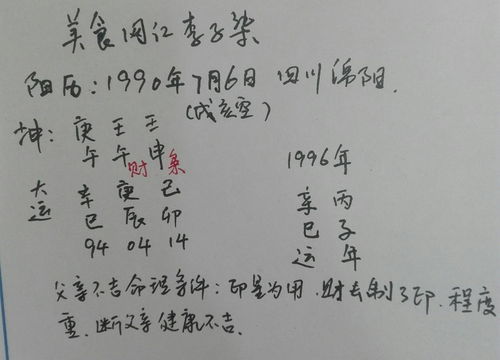 美食网红李子柒
阳历：1990年7月6日 四川绵阳.
(戌亥空)
坤：庚 壬 壬
午 午 申
财 枭
1996年
大运 辛 庚 己
巳 辰 卯
94 04 14
辛 丙
巳 子
运 年
父亲不吉命理条件：印星为用.财去制了印.程度
重.断父亲健康不吉.